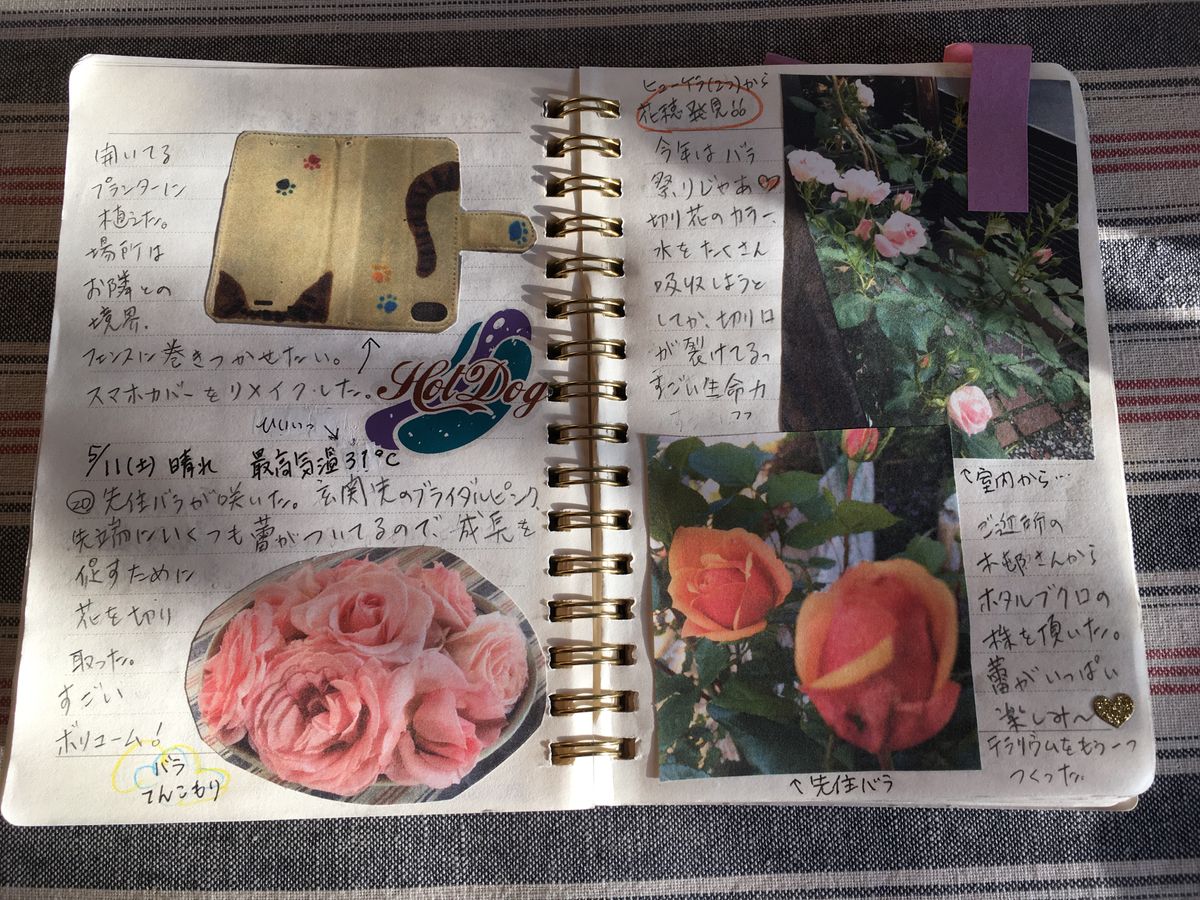 開いてる
プランターに
植えた。
場所は
お隣との
境界。
フェンスに巻きつかせたい。
スマホカバーをリメイクした。
Hot Dog
ひいいっ
5/11(土) 晴れ 最高気温31℃
⑳先住バラが咲いた。玄関先のブライダルピンク、
先端にいくつも蕾がついてるので、成長を
促すために
花を切り
取った。
すごい
ボリューム!
バラ
てんこもり
ヒューケラ(2つ)から
花穂発見
今年はバラ
祭りじゃあ♡
切り花のカラー、
水をたくさん
吸収しようと
してか、切り口
が裂けてるっ
すごい生命力
↑室内から…
ご近所の
さんから
ホタルブクロの
株を頂いた。
蕾がいっぱい
楽しみ〜
テラリウムをもう一つ
つくった。
↑先住バラ